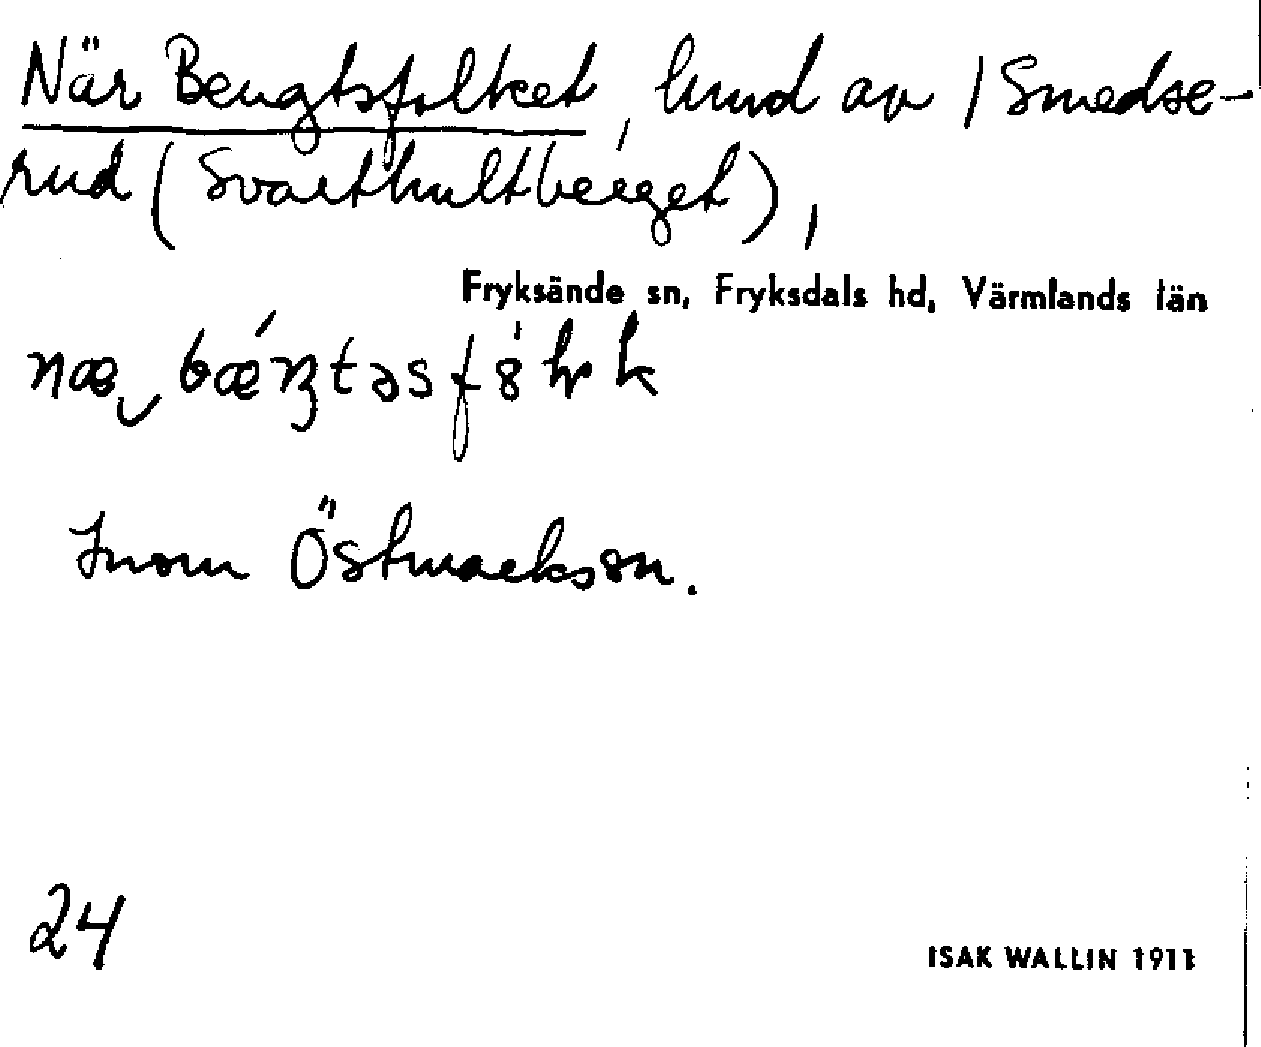 När Bengtsfolket, hund av / Smedse-
rud (Svarthultberget), /
Fryksände sn, Fryksdals hd, Värmlands län
Inom Östmarks sn.
24
ISAK WALLIN 1911